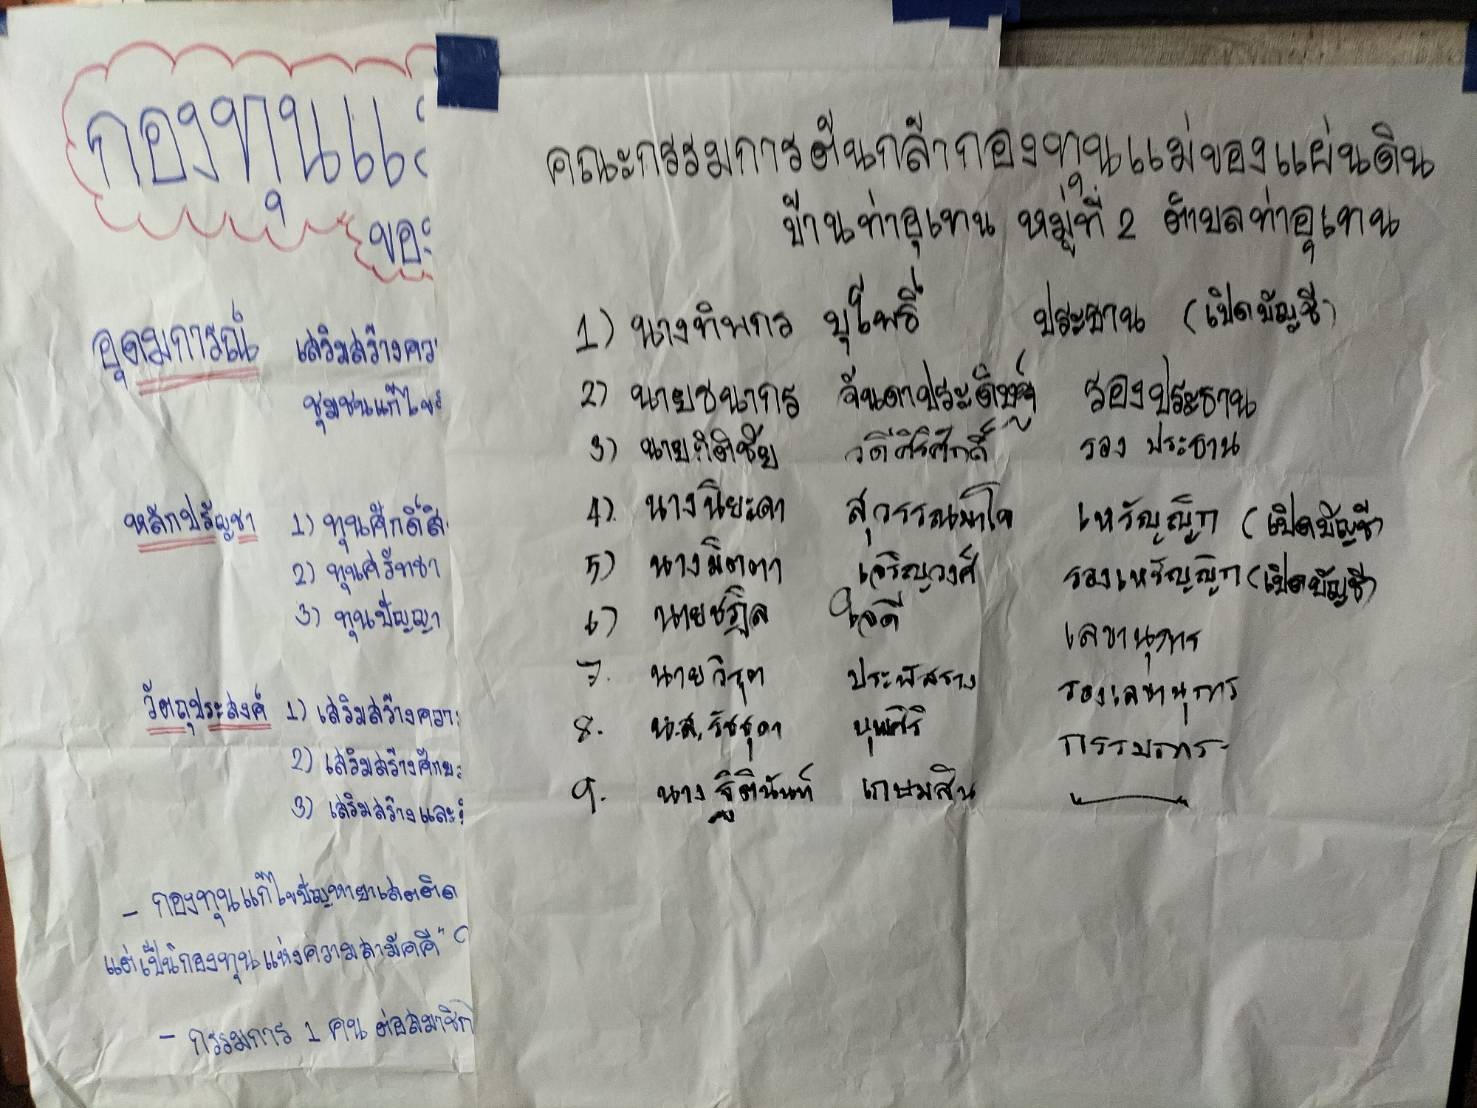 กองทุนแ
ขอ
อุดมการณ์ เสริมสร้างคว
ชุมชนแก้ไข
หลักปรัญชา 1) ทุนศักดิ์สิ
2) ทุนศรัทธา
3) ทุนปัญญา
วัตถุประสงค์ 1) เสริมสร้างควา
2) เสริมสร้างศักย
3) เสริมสร้างและ
- กองทุนแก้ไขปัญหายาเสพติด
แต่เป็นกองทุนแห่งความสามัคคี"
- กรรมการ 1 คน ต่อสมาชิก
คณะกรรมการต้นกล้ากองทุนแม่ของแผ่นดิน
บ้านท่าอุเทน หมู่ที่ 2 ตำบลท่าอุเทน
1) นางทิพกร ปุ้โพธิ์ ประธาน (เปิดบัญชี)
2) นายธนากร จันดาประดิษฐ์ รองประธาน
3) นายกิติชัย วดีศิริศักดิ์ รองประธาน
4) นางนิยะดา สุวรรณมาโจ เหรัญญิก (เปิดบัญชี)
5) นางมิตตา เจริญวงศ์ รองเหรัญญิก (เปิดบัญชี)
6) นายชฎิล ใจดี เลขานุการ
7. นายวิรุต รองเลขานุการ
8. น.ส. รัชชุดา บุพศิริ กรรมการ
9. นางฐิตินันท์ เกษมสิน